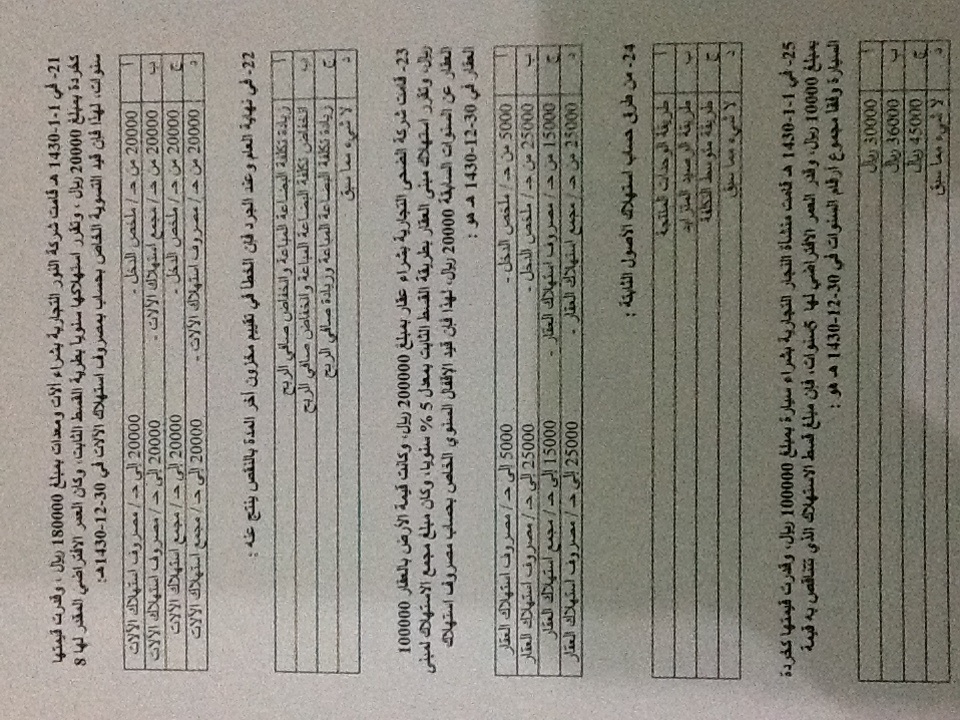 21- في 1-1-1430 هـ قامت شركة النور التجارية بشراء آلات ومعدات بمبلغ 180000 ريال ، وقدرت قيمتها
كخردة بمبلغ 20000 ريال ، وتقرر استهلاكها سنويا بطريقة القسط الثابت، وكان العمر الافتراضي المقدر لها 8
سنوات، لهذا فإن قيد التسوية الخاص بحساب مصروف استهلاك الآلات في 30-12-1430هـ:
أ 20000 من حـ / ملخص الدخل - 20000 إلى حـ / مصروف استهلاك الآلات
ب 20000 من حـ / مجمع استهلاك الآلات - 20000 إلى حـ / مصروف استهلاك الآلات
ج 20000 من حـ / ملخص الدخل - 20000 إلى حـ / مجمع استهلاك الآلات
د 20000 من حـ / مصروف استهلاك الآلات - 20000 إلى حـ / مجمع استهلاك الآلات
22- في نهاية العام وعند الجرد فإن الخطأ في تقييم مخزون آخر المدة بالنقص ينتج عنه :
أ زيادة تكلفة البضاعة المباعة وانخفاض صافي الربح
ب انخفاض تكلفة البضاعة المباعة وانخفاض صافي الربح
ج زيادة تكلفة البضاعة المباعة وزيادة صافي الربح
د لا شيء مما سبق
23- قامت شركة الضحى التجارية بشراء عقار بمبلغ 200000 ريال، وكانت قيمة الأرض بالعقار 100000
ريال، وتقرر استهلاك مبنى العقار بطريقة القسط الثابت بمعدل 5 % سنويا، وكان مبلغ مجمع الاستهلاك لمبنى
العقار عن السنوات السابقة 20000 ريال، لهذا فإن قيد الاقفال السنوي الخاص بحساب مصروف استهلاك
العقار في 30-12-1430 هـ هو :
أ 5000 من حـ / ملخص الدخل - 5000 إلى حـ / مصروف استهلاك العقار
ب 25000 من حـ / ملخص الدخل - 25000 إلى حـ / مصروف استهلاك العقار
ج 15000 من حـ / مصروف استهلاك العقار - 15000 إلى حـ / مجمع استهلاك العقار
د 25000 من حـ / مجمع استهلاك العقار - 25000 إلى حـ / مصروف استهلاك العقار
24- من طرق حساب استهلاك الأصول الثابتة :
أ طريقة الوحدات المنتجة
ب طريقة الرصيد المتزايد
ج طريقة متوسط التكلفة
د لا شيء مما سبق
25- في 1-1-1430 هـ قامت منشأة النجار التجارية بشراء سيارة بمبلغ 100000 ريال، وقدرت قيمتها كخردة
بمبلغ 10000 ريال، وقدر العمر الافتراضي لها سنوات، فإن مبلغ قسط الاستهلاك الذي تتناقص به قيمة
السيارة وفقا مجموع أرقام السنوات في 30-12-1430 هـ هو :
أ 30000 ريال
ب 36000 ريال
ج 45000 ريال
د لا شيء مما سبق